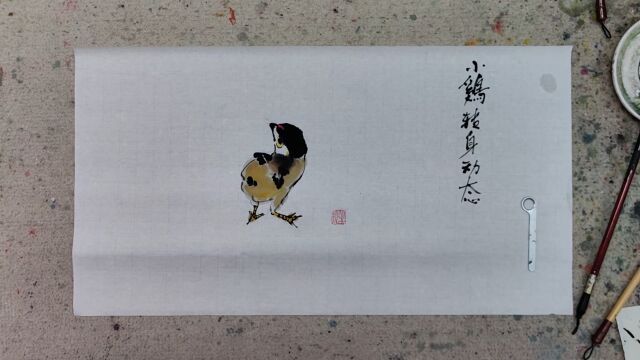 小鷄转身动态